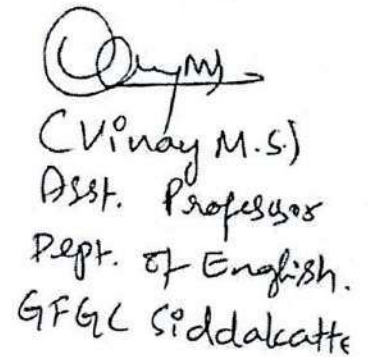 (Vinay M.S.)
Asst. Professor
Dept. of English.
GFGC Siddakatte